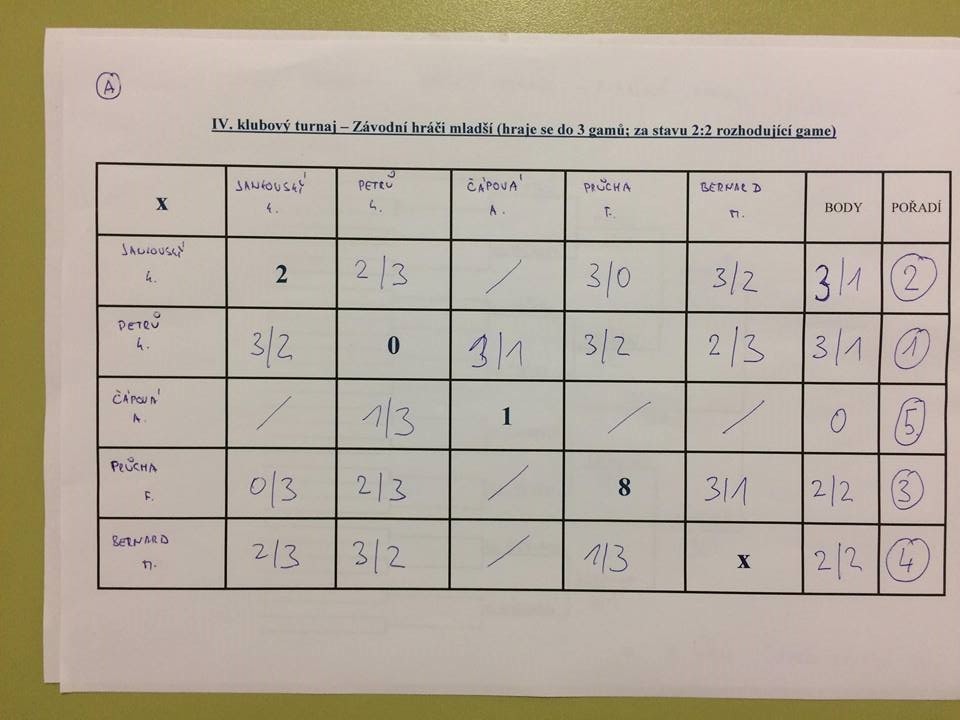 A
IV. klubový turnaj – Závodní hráči mladší (hraje se do 3 gamů; za stavu 2:2 rozhodující game)
x JANKOVSKÝ L. PETRŮ L. ČÁPOVÁ A. PRŮCHA F. BERNARD M. BODY POŘADÍ
JANKOVSKÝ L. 2 2/3 / 3/0 3/2 3/1 2
PETRŮ L. 3/2 0 3/1 3/2 2/3 3/1 1
ČÁPOVÁ A. / 1/3 1 / / 0 5.
PRŮCHA F. 0/3 2/3 / 8 3/1 2/2 3
BERNARD M. 2/3 3/2 / 1/3 x 2/2 4